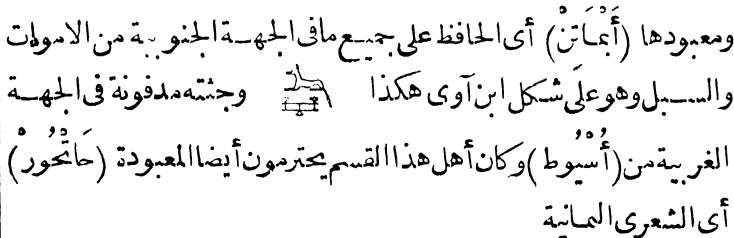 ومعبودها (أَبْمَاتِنْ) أى الحافظ على جميع مافى الجهة الجنوبية من الاموات
والسبل وهو على شكل ابن آوى هكذا وجثته مدفونة فى الجهة
الغربية من (أُسْيُوط) وكان أهل هذا القسم يحترمون أيضا المعبودة (حَاتْحُور)
أى الشعرى اليمانية